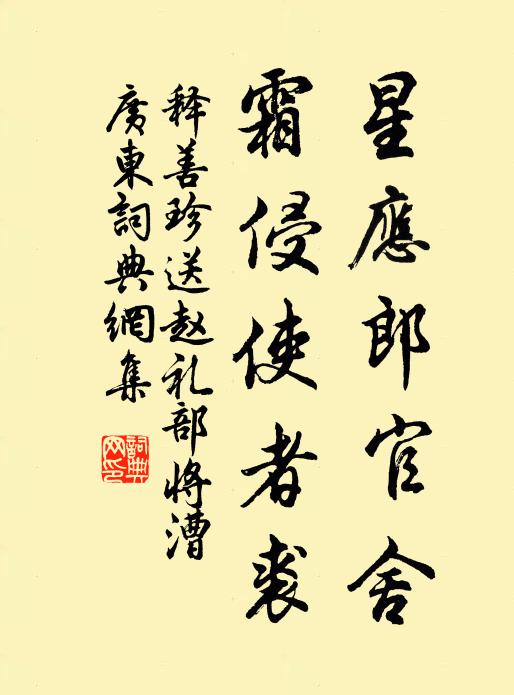 星應郎官舍
霜侵使者裘
释善珍送赵礼部将漕
廣東詞典網集
詞典網印